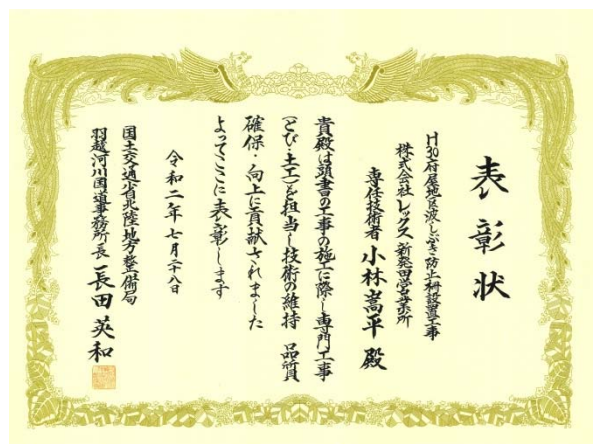 表彰状
H30府屋地区波しぶき防止柵設置工事
株式会社レックス 新発田営業所
専任技術者 小林嵩平 殿
貴殿は頭書の工事の施工に際し専門工事
とび・土工を担当し技術の維持 品質
確保・向上に貢献されました
よってここに表彰します
令和二年七月二十八日
国土交通省北陸地方整備局
羽越河川国道事務所長 長田英和